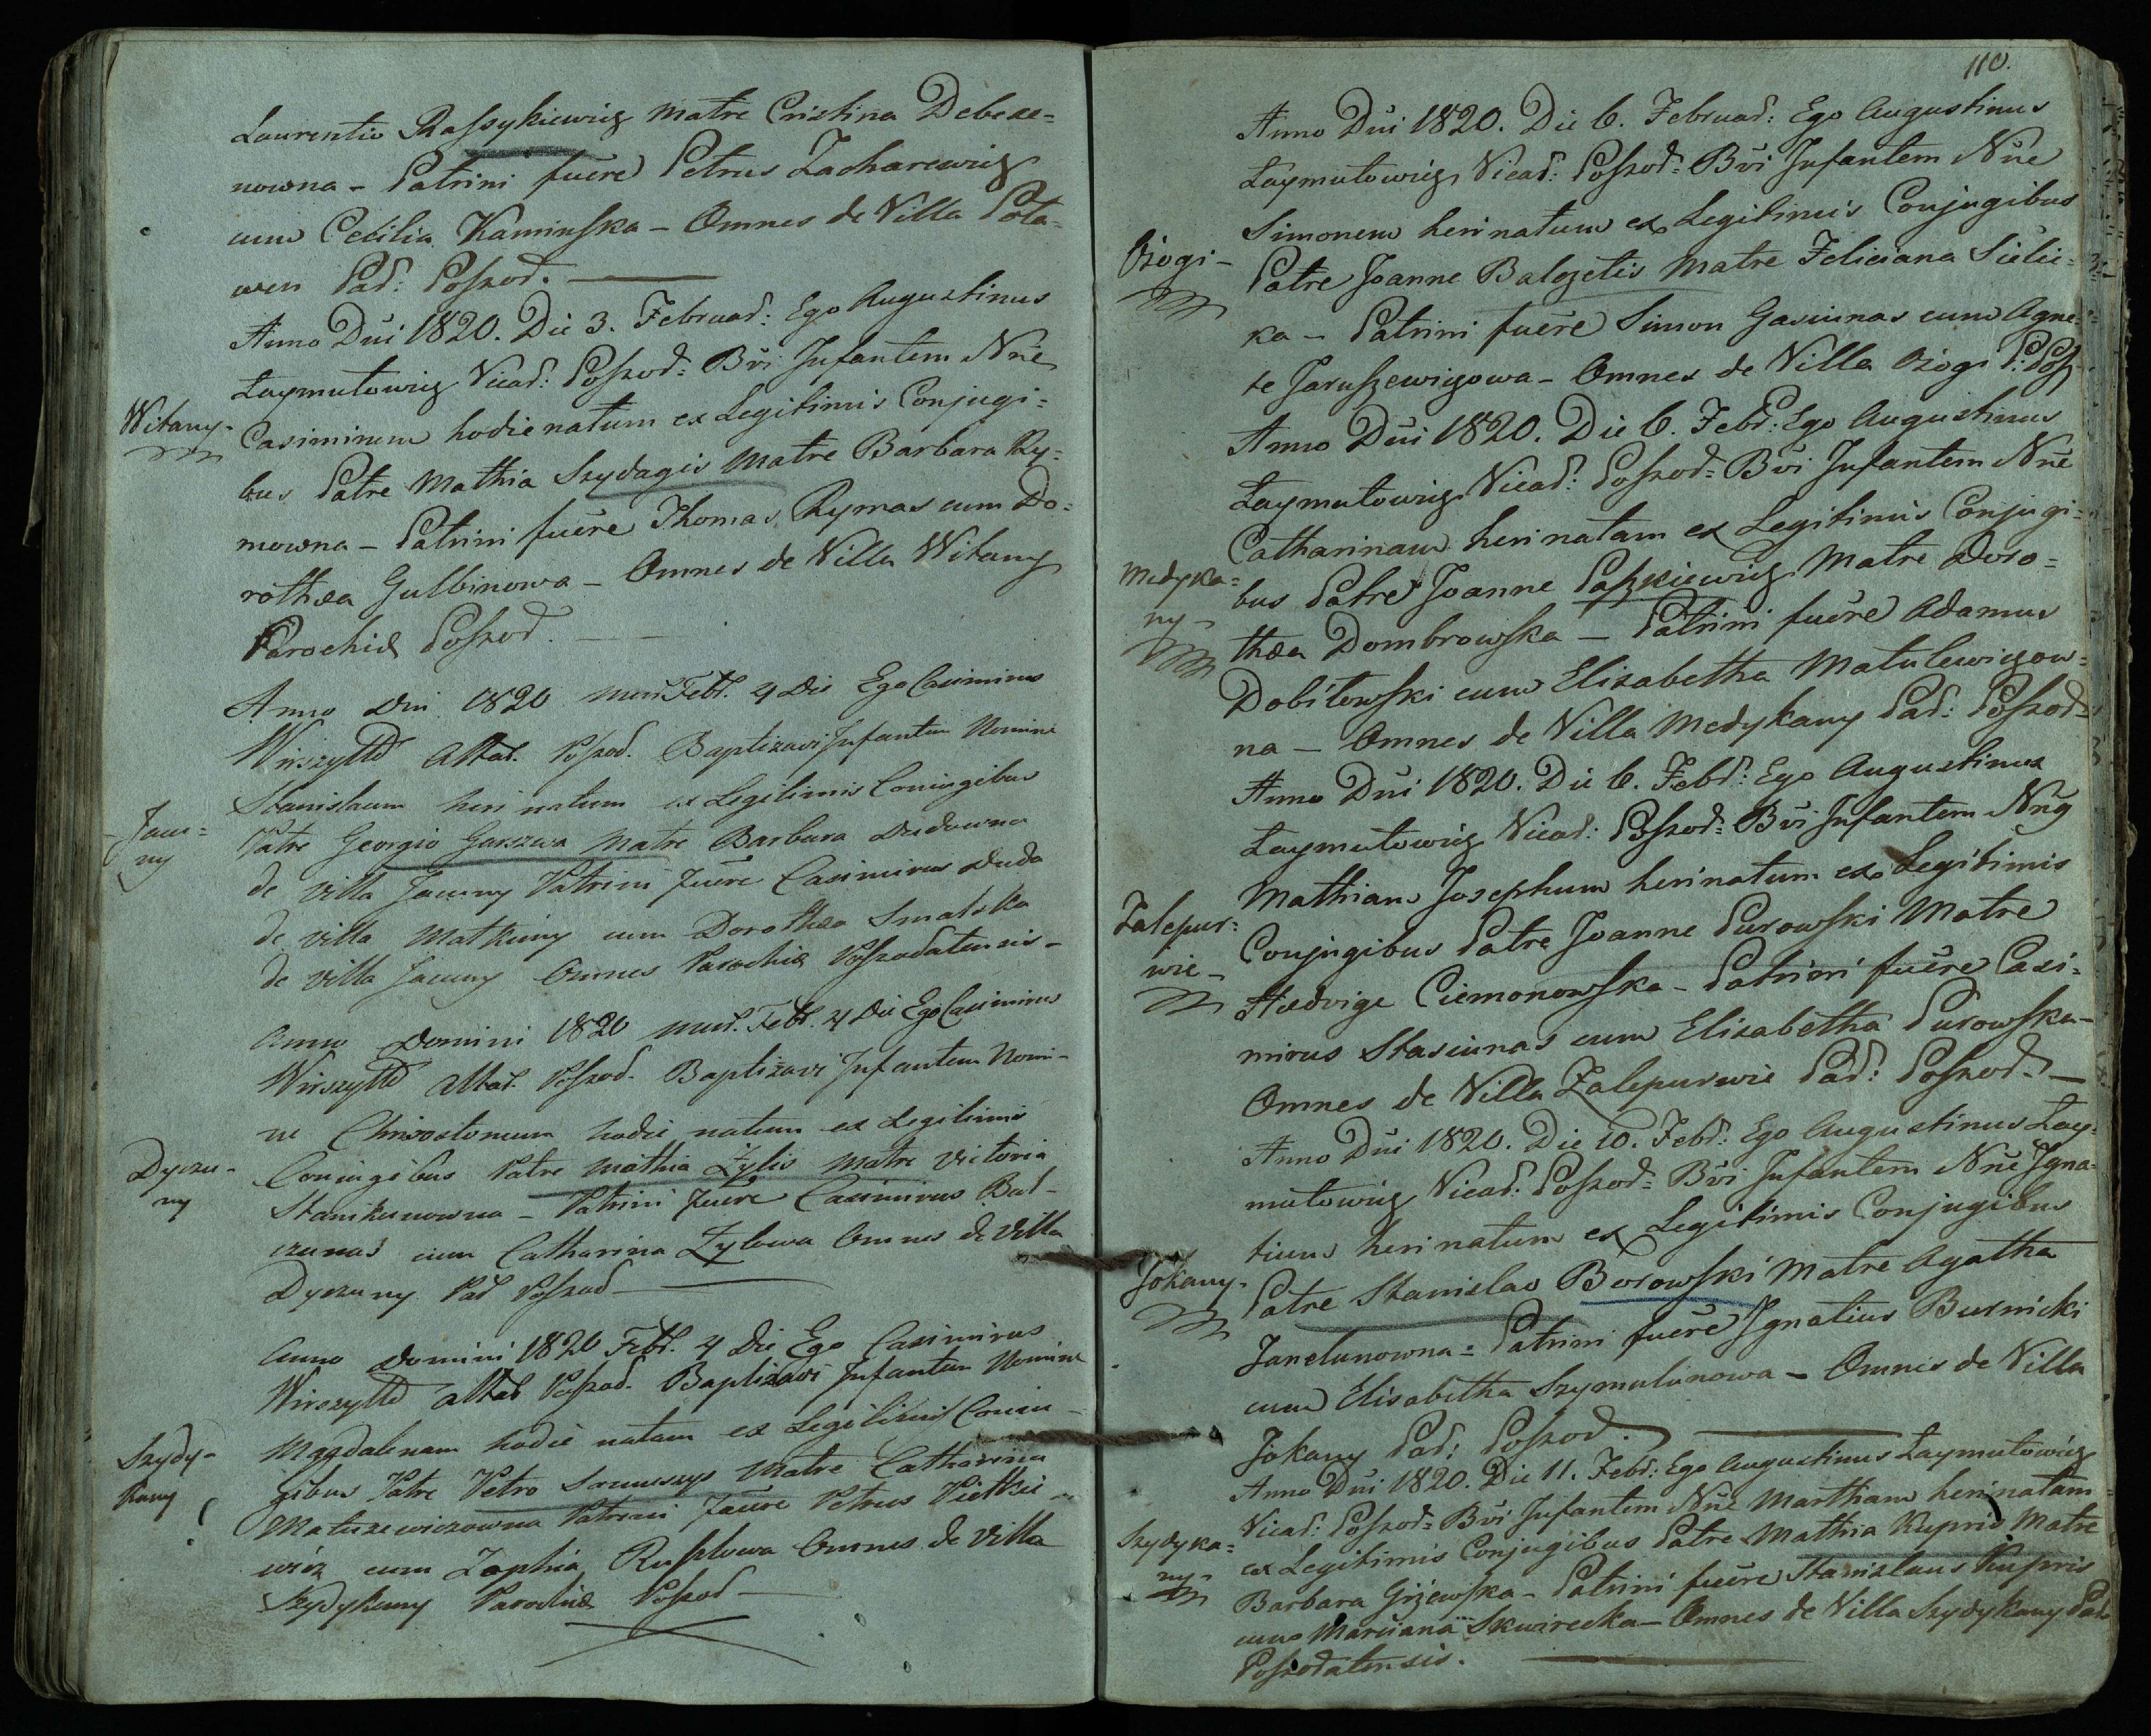 Laurentio Rassykiewicz Matre Cristina Debexe=
nowna – Patrini fuere Petrus Zacharewicz
cum Cecilia Kaminska – Omnes de Villa Pota=
wen Par: Poszod. —
Anno Dni 1820. Die 3. Februar: Ego Augustinus
Laymutowicz Vicar: Poszod: Bvi Infantem Nne
Witany-
Casimirum hodie natum ex Legitimis Conjugi=
bus Patre Mathia Szydagis Matre Barbara Ry=
mowna – Patrini fuere Thomas Rymas cum Do=
rothea Gulbinowa – Omnes de Villa Witany
Parochiæ Poszod. —
Anno Dni 1820 mens Febr. 4 Die Ego Casimirus
Wirszyłło Altar. Poszod. Baptizavi Infantem Nomine
Stanislaum heri natum ex Legitimis Coniugibus
Jaw=
ny
Patre Georgio Garszwa Matre Barbara Dudowna
de villa Jauny Patrini fuere Casimirus Duda
de villa Matkuny cum Dorothea Smalska
de villa Jauny Omnes Parochiæ Poszodatensis –
Anno Domini 1820 mens. Febr. 4 Die Ego Casimirus
Wirszyłło Altar. Poszod. Baptizavi Infantem Nomi-
ne Chrisostomum hodie natum ex Legitimis
Dyczu-
ny
Coniugibus Patre Mathia Żylis Matre Victoria
Stanikunowna – Patrini fuere Casimirus Bal-
czunas cum Catharina Żylowa Omnes de Villa
Dyczuny Par Poszod —
Anno Domini 1820 Febr. 4 Die Ego Casimirus
Wirszyłło Altar Poszod. Baptizavi Infantem Nomine
Magdalenam hodie natam ex Legitimis Coniu-
Szydy-
kany
gibus Patre Petro Matre Catharina
Matuzewiczowna Patrini fuere Petrus Pietkie
wicz cum Zophia Omnes de Villa
Szydykany Parochiæ Poszod —
110.
Anno Dni 1820. Die 6. Februar: Ego Augustinus
Laymutowicz Vicar: Poszod: Bvi Infantem Nne
Simonem heri natum ex Legitimis Conjugibus
Ożogi-
Patre Joanne Balczetis Matre Feliciana Sielic=
ka – Patrini fuere Simon Gasiunas cum Agne=
te Jaruszewiczowa – Omnes de Villa Ożogi P: Posz
Anno Dni 1820. Die 6. Febr: Ego Augustinus
Laymutowicz Vicar: Poszod: Bvi Infantem Nne
Catharinam heri natam ex Legitimis Conjugi=
Medyka=
ny-
bus Patre Joanne Paszkiewicz Matre Doro=
thea Dombrowska – Patrini fuere Adamus
Dobilewski cum Elizabetha Matulewiczow=
na – Omnes de Villa Medykany Par: Poszod=
Anno Dni 1820. Die 6. Febr: Ego Augustinus
Laymutowicz Vicar: Poszod: Bvi Infantem Nne
Mathiam Josephum heri natum ex Legitimis
Zalepur=
wie-
Conjugibus Patre Joanne Purowski Matre
Hedvige Ciemonowska – Patrini fuere Casi=
mirus Stasiunas cum Elisabetha Purowska –
Omnes de Villa Zalepurwie Par: Poszod. —
Anno Dni 1820. Die 10. Febr: Ego Augustinus Lay=
mutowicz Vicar: Poszod: Bvi Infantem Nne Igna=
tium heri natum ex Legitimis Conjugibus
Jokany-
Patre Stanislao Borowski Matre Agatha
Janelunowna = Patrini fuere Ignatius Burnicki
cum Elisabetha Szymulunowa – Omnes de Villa
Jokany Par: Poszod. —
Anno Dni 1820. Die 11. Febr: Ego Augustinus Laymutowicz
Vicar: Poszod: Bvi Infantem Nne Martham heri natam
Szydyka=
ny-
ex Legitimis Conjugibus Patre Mathia Kupris Matre
Barbara Griżewska – Patrini fuere Stanislaus Kupris
cum Marciana Skwirecka – Omnes de Villa Szydykany Par
Poszodatensis. —